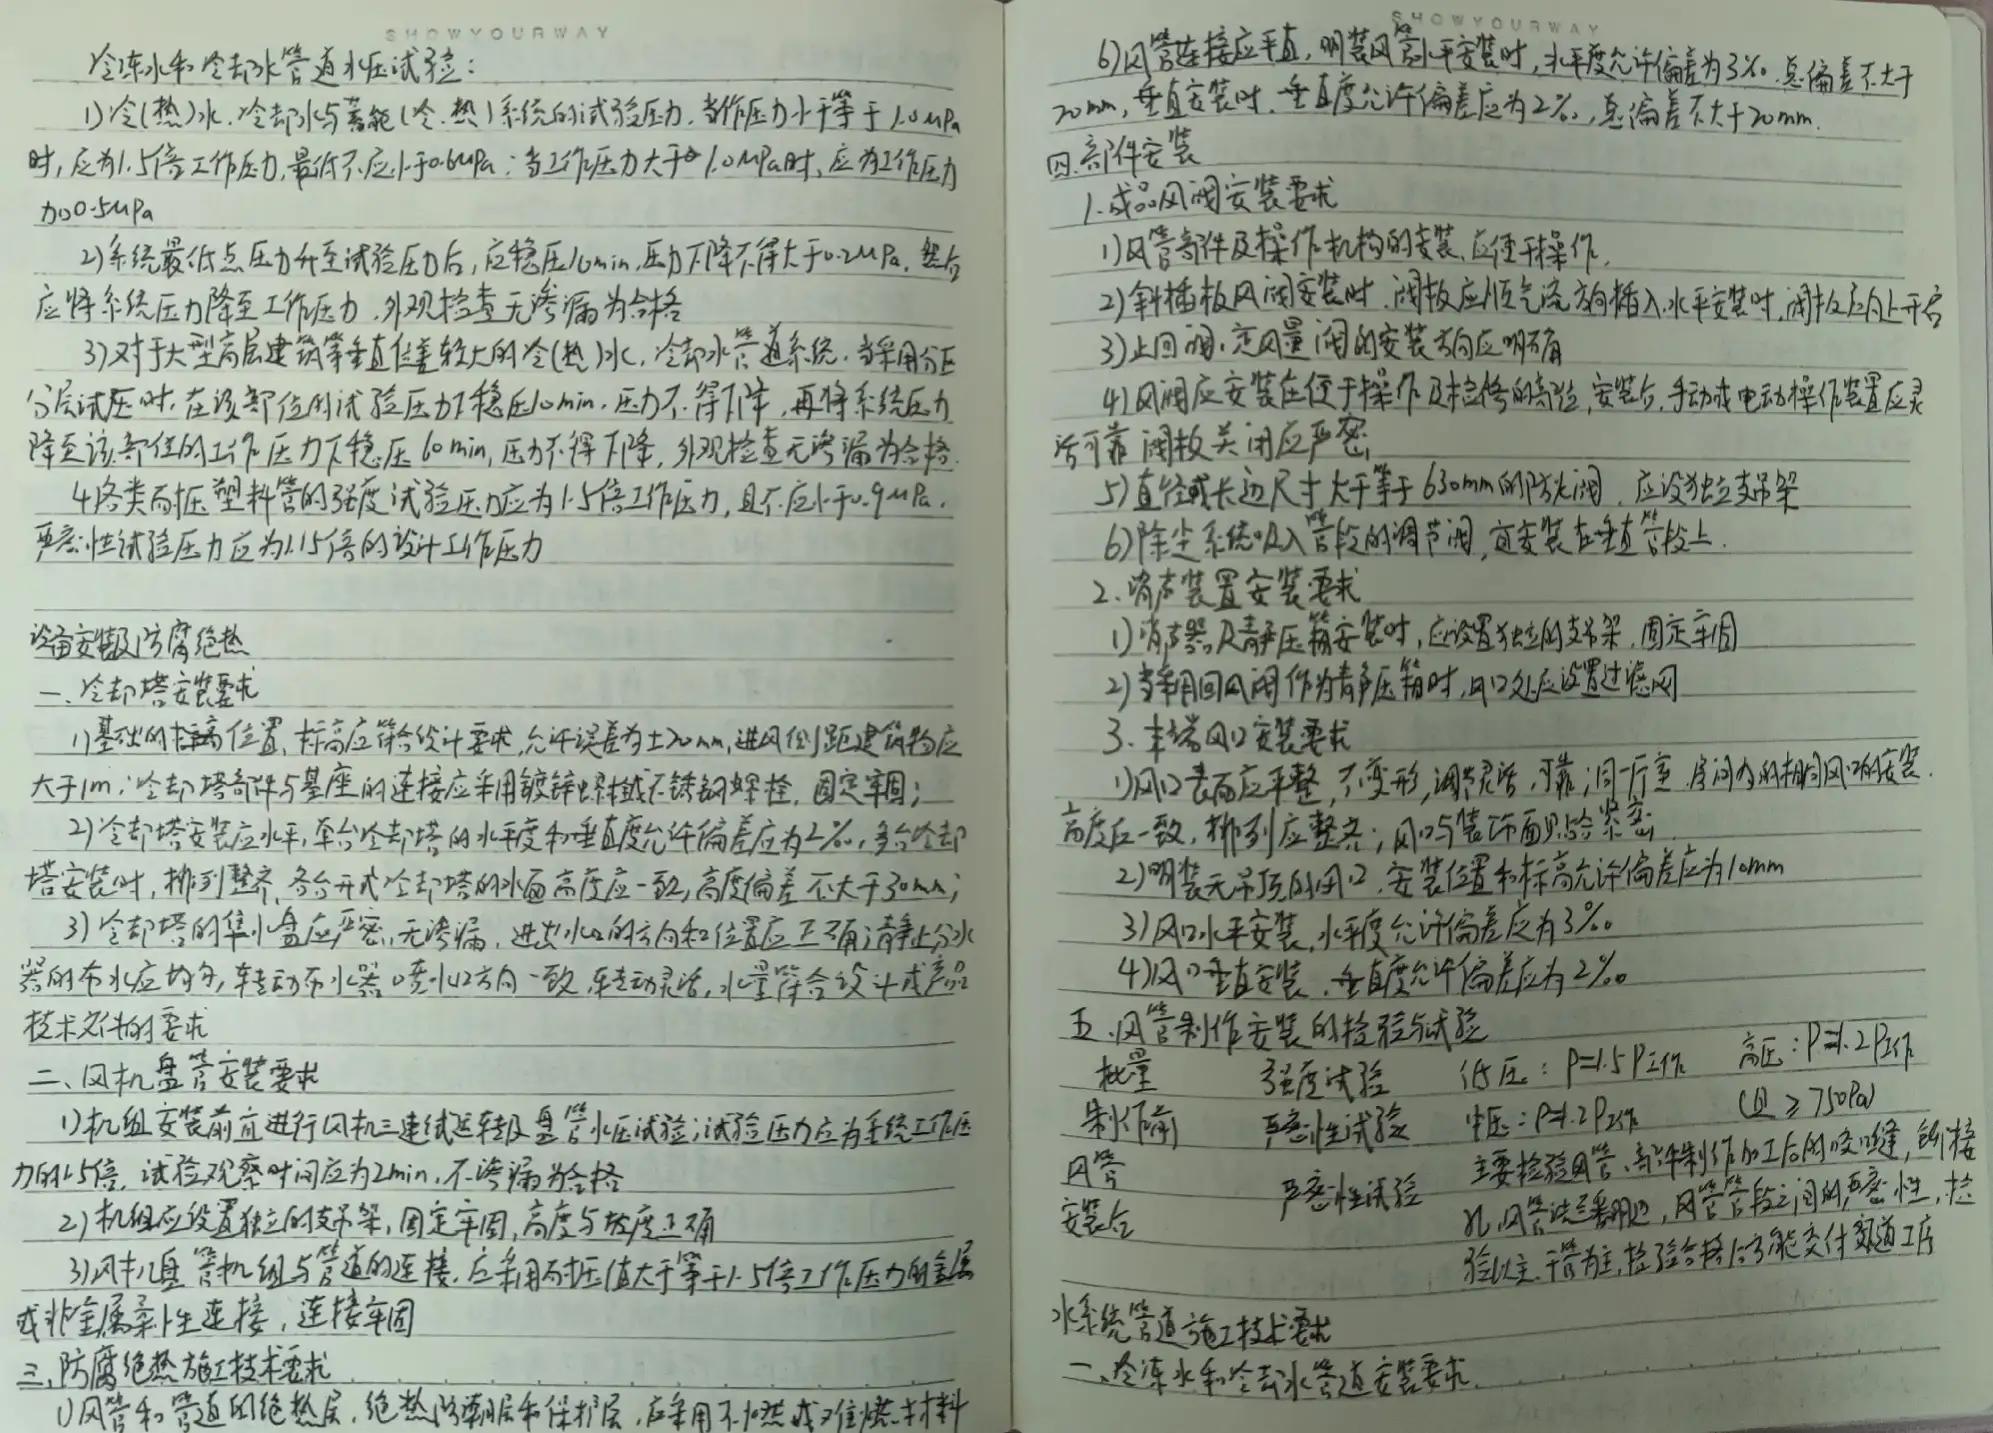 SHOWYOURWAY
冷冻水和冷却水管道水压试验:
1)冷(热)水、冷却水与蓄能(冷、热)系统的试验压力,当作压力小于等于1.0MPa
时,应为1.5倍工作压力,最低不应小于0.6MPa;当工作压力大于1.0MPa时,应为工作压力
加0.5MPa
2)系统最低点压力升至试验压力后,应稳压10min,压力下降不得大于0.2MPa,然后
应将系统压力降至工作压力,外观检查无渗漏为合格
3)对于大型高层建筑等垂直位差较大的冷(热)水、冷却水管道系统,当采用分区
分层试压时,在该部位的试验压力下稳压10min,压力不得下降,再将系统压力
降至该部位的工作压力下稳压60min,压力不得下降,外观检查无渗漏为合格.
4)各类耐压塑料管的强度试验压力应为1.5倍工作压力,且不应小于0.9MPa,
严密性试验压力应为1.15倍的设计工作压力
设备安装及防腐绝热
一、冷却塔安装要求
1)基础的位置、标高应符合设计要求,允许误差为±20mm,进风侧距建筑物应
大于1m;冷却塔部件与基座的连接应采用镀锌螺栓或不锈钢螺栓,固定牢固;
2)冷却塔安装应水平,单台冷却塔的水平度和垂直度允许偏差应为2‰,多台冷却
塔安装时,排列整齐,各台开式冷却塔的水面高度应一致,高度偏差不大于30mm;
3)冷却塔的集水盘应严密、无渗漏,进出水口的方向和位置应正确;静止分水
器的布水应均匀,转动布水器喷水口方向一致,转动灵活,水量符合设计或产品
技术文件的要求
二、风机盘管安装要求
1)机组安装前宜进行风机三速试运转及盘管水压试验;试验压力应为系统工作压
力的1.5倍,试验观察时间应为2min,不渗漏为合格
2)机组应设置独立的支吊架,固定牢固,高度与坡度正确
3)风机盘管机组与管道的连接,应采用耐压值大于等于1.5倍工作压力的金属
或非金属柔性连接,连接牢固
三、防腐绝热施工技术要求
1)风管和管道的绝热层、绝热防潮层和保护层,应采用不燃或难燃材料
SHOWYOURWAY
6)风管连接应平直,明装风管水平安装时,水平度允许偏差为3‰,总偏差不大于
20mm,垂直安装时,垂直度允许偏差应为2‰,总偏差不大于20mm.
四、部件安装
1.成品风阀安装要求
1)风管部件及操作机构的安装,应便于操作.
2)斜插板风阀安装时,阀板应顺气流方向插入,水平安装时,阀板应向上开启
3)止回阀、定风量阀的安装方向应明确
4)风阀应安装在便于操作及检修的部位,安装后,手动或电动操作装置应灵
活可靠 阀板关闭应严密
5)直径或长边尺寸大于等于630mm的防火阀,应设独立支吊架
6)除尘系统吸入管段的调节阀,宜安装在垂直管段上.
2.消声装置安装要求
1)消声器及静压箱安装时,应设置独立的支吊架,固定牢固
2)当采用回风阀作为静压箱时,风口处应设置过滤网
3.末端风口安装要求
1)风口表面应平整,不变形,调节灵活、可靠;同一厅室、房间内的相同风口的安装
高度应一致,排列应整齐;风口与装饰面贴合紧密
2)明装无吊顶的风口,安装位置和标高允许偏差应为10mm
3)风口水平安装,水平度允许偏差应为3‰
4)风口垂直安装,垂直度允许偏差应为2‰
五、风管制作安装的检验与试验
批量 强度试验 低压:P=1.5P工作 高压:P=1.2P工作
制作前 严密性试验 中压:P=1.2P工作 (且≥750Pa)
风管 主要检验风管、部件制作加工后的咬口缝,铆接
安装后 严密性试验 孔,风管法兰翻边,风管管段之间的严密性,检
验以主、干管为主,检验合格后方能交付下道工序
水系统管道施工技术要求
一、冷冻水和冷却水管道安装要求